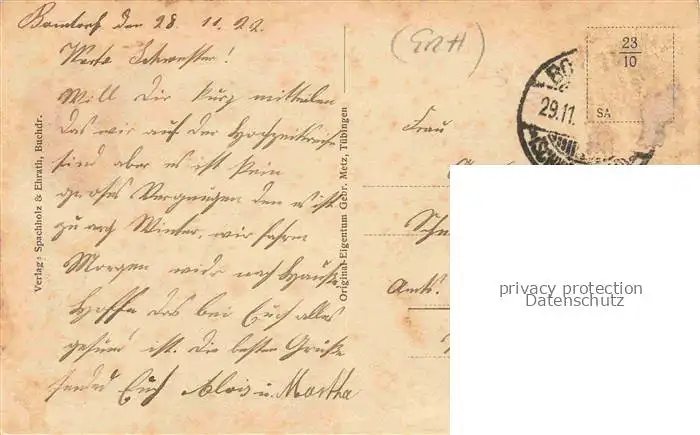 Bonndorf den 28. 11. 22
Werte Schwester!
Will Dir kurz mitteilen
das wir auf der Hochzeitreise
sind aber es ist kein
großes Vergnügen den es ist
zu arg Winter, wir fahren
Morgen wieder nach Hause
Hoffe das bei Euch alles
gesund ist. Die besten Grüße
sendet Euch Alois u. Martha
Verlag: Spachholz & Ehrath, Buchdr.
Original-Eigentum Gebr. Metz, Tübingen
23
10
SA
BO
29.11.
Frau
Amts.
privacy protection
Datenschutz